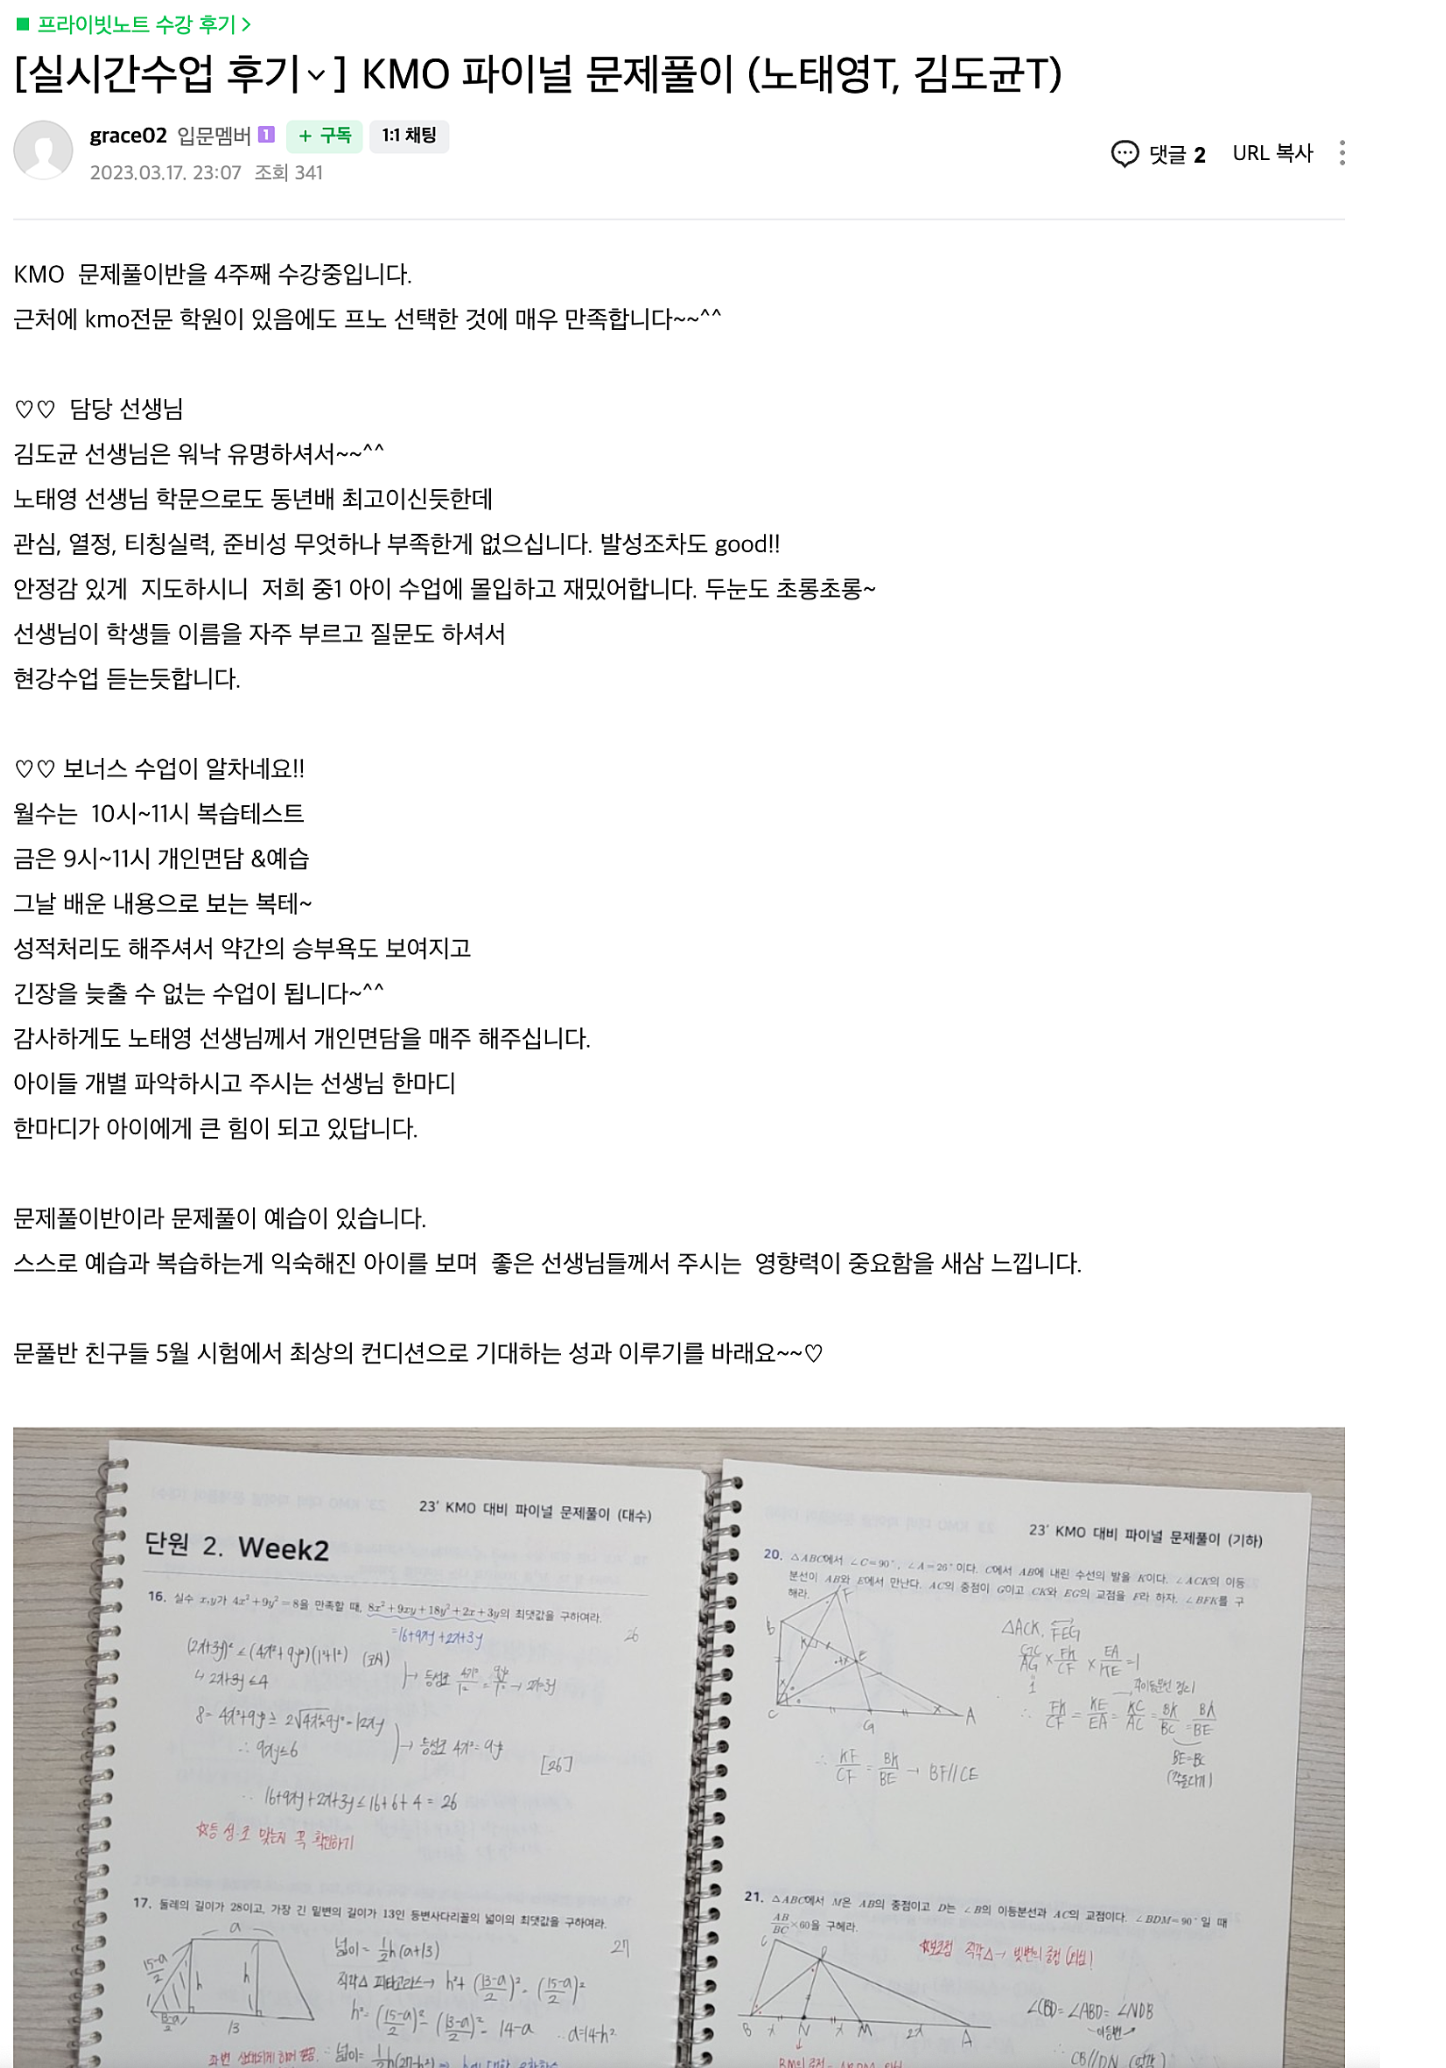 ■ 프라이빗노트 수강 후기 >
[실시간수업 후기 ] KMO 파이널 문제풀이 (노태영T, 김도균T)
grace02 입문멤버 1 + 구독 1:1 채팅
2023.03.17. 23:07 조회 341
댓글 2 URL 복사
KMO 문제풀이반을 4주째 수강중입니다.
근처에 kmo전문 학원이 있음에도 프노 선택한 것에 매우 만족합니다~~^^
♡♡ 담당 선생님
김도균 선생님은 워낙 유명하셔서~~^^
노태영 선생님 학문으로도 동년배 최고이신듯한데
관심, 열정, 티칭실력, 준비성 무엇하나 부족한게 없으십니다. 발성조차도 good!!
안정감 있게 지도하시니 저희 중1 아이 수업에 몰입하고 재밌어합니다. 두눈도 초롱초롱~
선생님이 학생들 이름을 자주 부르고 질문도 하셔서
현강수업 듣는듯합니다.
♡♡ 보너스 수업이 알차네요!!
월수는 10시~11시 복습테스트
금은 9시~11시 개인면담 &예습
그날 배운 내용으로 보는 복테~
성적처리도 해주셔서 약간의 승부욕도 보여지고
긴장을 늦출 수 없는 수업이 됩니다~^^
감사하게도 노태영 선생님께서 개인면담을 매주 해주십니다.
아이들 개별 파악하시고 주시는 선생님 한마디
한마디가 아이에게 큰 힘이 되고 있답니다.
문제풀이반이라 문제풀이 예습이 있습니다.
스스로 예습과 복습하는게 익숙해진 아이를 보며 좋은 선생님들께서 주시는 영향력이 중요함을 새삼 느낍니다.
문풀반 친구들 5월 시험에서 최상의 컨디션으로 기대하는 성과 이루기를 바래요~~♡
23' KMO 대비 파이널 문제풀이 (대수)
단원 2. Week2
16. 실수 x,y가 4x²+9y²=8을 만족할 때, 8x²+9xy+18y²+2x+3y의 최댓값을 구하여라.
=16+9xy+2x+3y
26
(2x+3y)² ≤ (4x²+9y²)(1²+1²)
↳ 2x+3y ≤ 4
8 = 4x²+9y² ≥ 2√4x²·9y² = 12xy
∴ 9xy ≤ 6
→ 등성조 4x²=9y²
[26]
∴ 16+9xy+2x+3y ≤ 16+6+4 = 26
☆등성조 맞는지 꼭 확인하기
17. 둘레의 길이가 28이고, 가장 긴 밑변의 길이가 13인 등변사다리꼴의 넓이의 최댓값을 구하여라.
27
a
15-a/2
h
h
13-a/2
13
넓이 = 1/2 h(a+13)
직각△ 피타고라스 → h²+(13-a/2)² = (15-a/2)²
h² = (15-a/2)² - (13-a/2)² = 14-a ∴ a=14-h²
23' KMO 대비 파이널 문제풀이 (기하)
20. △ABC에서 ∠C=90°, ∠A=26°이다. C에서 AB에 내린 수선의 발을 K이다. ∠ACK의 이등
분선이 AB와 E에서 만난다. AC의 중점이 G이고 CK와 EG의 교점을 F라 하자. ∠BFK를 구
해라.
F
B
K
E
C
G
A
△ACK, FEG
GC/AG × FK/CF × EA/KE = 1
∴ FK/CF = KE/EA = KC/AC = BK/BC = BK/BE
BE=BC
∴ KF/CF = BK/BE → BF//CE
21. △ABC에서 M은 AB의 중점이고 D는 ∠B의 이등분선과 AC의 교점이다. ∠BDM=90°일 때
AB/BC×60을 구해라.
☆보조점 직각△ → 빗변의 중점 (외심)
C
D
B x N x M 2x A
∠CBD = ∠ABD = ∠NDB
CB//DN